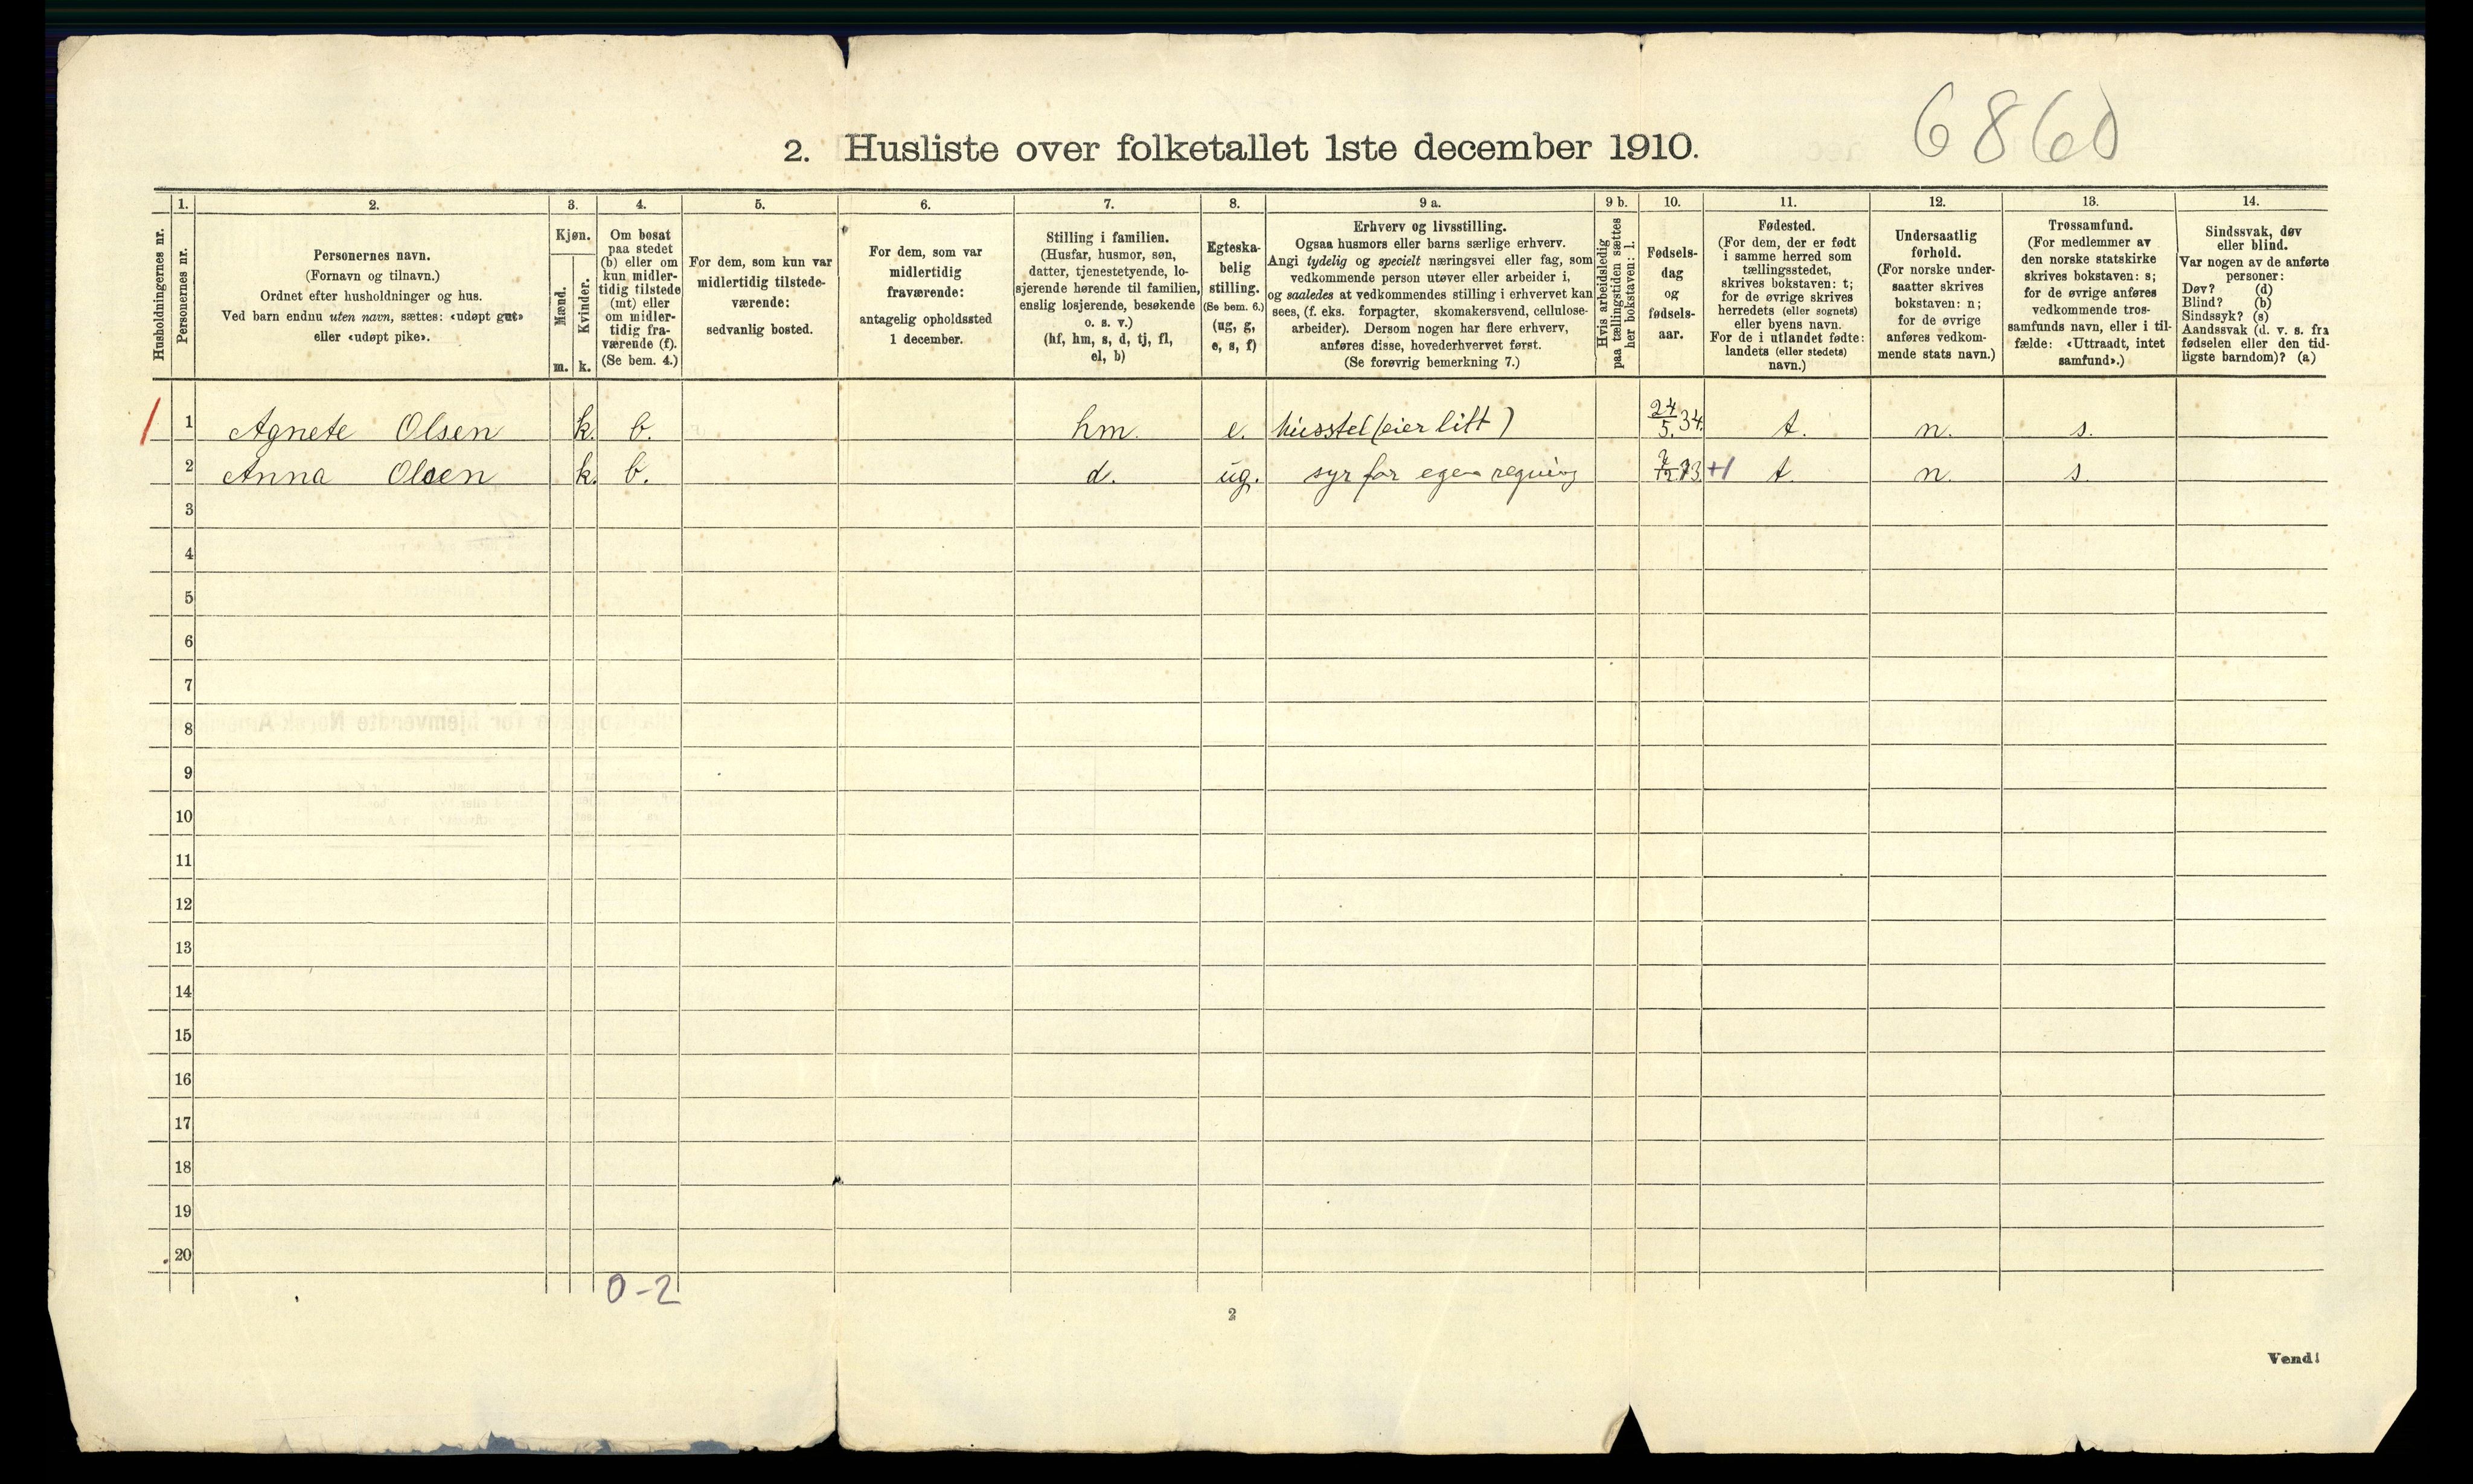 6860
2. Husliste over folketallet 1ste december 1910.
Husholdningernes nr.
1.
Personernes nr.
2.
Personernes navn.
(Fornavn og tilnavn.)
Ordnet efter husholdninger og hus.
Ved barn endnu uten navn, sættes: «udøpt gut»
eller «udøpt pike».
3.
Kjøn.
Mænd.
Kvinder.
m.
k.
4.
Om bosat
paa stedet
(b) eller om
kun midler-
tidig tilstede
(mt) eller
om midler-
tidig fra-
værende (f).
(Se bem. 4.)
5.
For dem, som kun var
midlertidig tilstede-
værende:
sedvanlig bosted.
6.
For dem, som var
midlertidig
fraværende:
antagelig opholdssted
1 december.
7.
Stilling i familien.
(Husfar, husmor, søn,
datter, tjenestetyende, lo-
sjerende hørende til familien,
enslig losjerende, besøkende
o. s. v.)
(hf, hm, s, d, tj, fl,
el, b)
8.
Egteska-
belig
stilling.
(Se bem. 6.)
(ug, g,
e, s, f)
9 a.
Erhverv og livsstilling.
Ogsaa husmors eller barns særlige erhverv.
Angi tydelig og specielt næringsvei eller fag, som
vedkommende person utøver eller arbeider i,
og saaledes at vedkommendes stilling i erhvervet kan
sees, (f. eks. forpagter, skomakersvend, cellulose-
arbeider). Dersom nogen har flere erhverv,
anføres disse, hovederhvervet først.
(Se forøvrig bemerkning 7.)
9 b.
Hvis arbeidsledig
paa tællingstiden sættes
her bokstaven: l.
10.
Fødsels-
dag
og
fødsels-
aar.
11.
Fødested.
(For dem, der er født
i samme herred som
tællingsstedet,
skrives bokstaven: t;
for de øvrige skrives
herredets (eller sognets)
eller byens navn.
For de i utlandet fødte:
landets (eller stedets)
navn.)
12.
Undersaatlig
forhold.
(For norske under-
saatter skrives
bokstaven: n;
for de øvrige
anføres vedkom-
mende stats navn.)
13.
Trossamfund.
(For medlemmer av
den norske statskirke
skrives bokstaven: s;
for de øvrige anføres
vedkommende tros-
samfunds navn, eller i til-
fælde: «Uttraadt, intet
samfund».)
14.
Sindssvak, døv
eller blind.
Var nogen av de anførte
personer:
Døv? (d)
Blind? (b)
Sindssyk? (s)
Aandssvak (d. v. s. fra
fødselen eller den tid-
ligste barndom)? (a)
1 Agnete Olsen k. b. hm. e. husstel (eier litt) 24/5.34. t. n. s.
2 Anna Olsen k. b. d. ug. syr for egen regning 7/12.73. +1 t. n. s.
3
4
5
6
7
8
9
10
11
12
13
14
15
16
17
18
19
20
0-2
2
Vend!